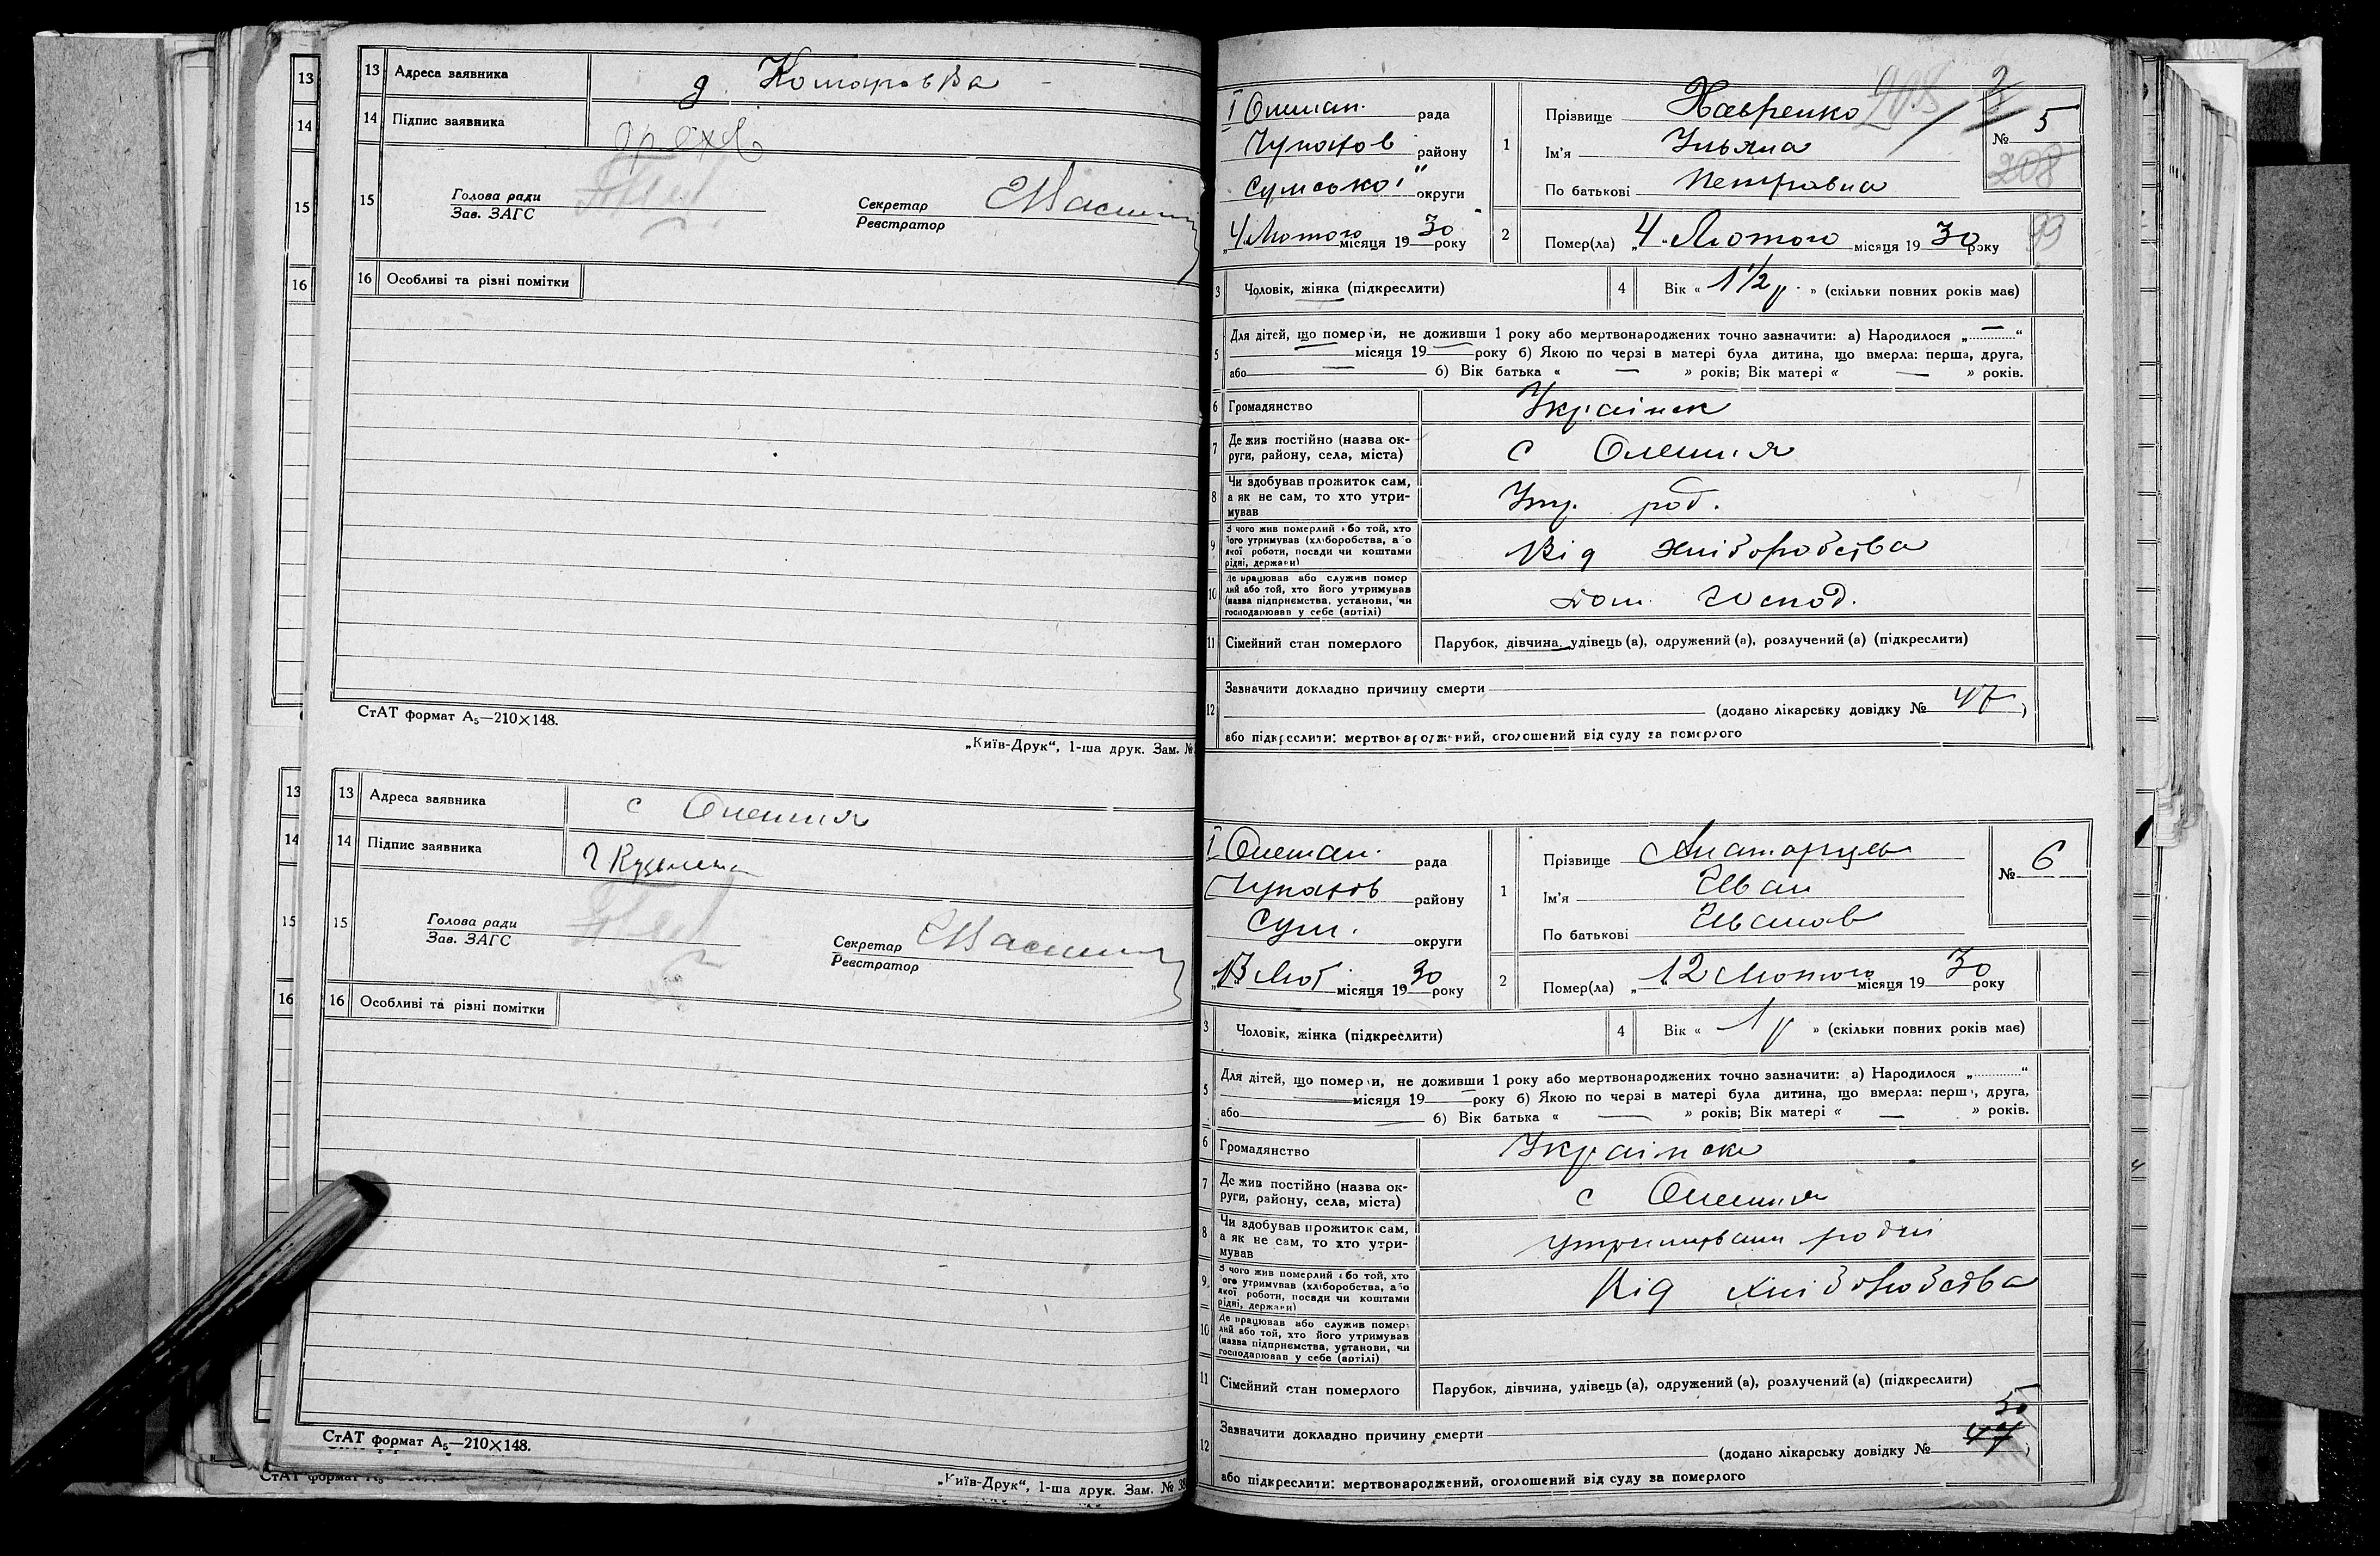 13 Адреса заявника д. Комаровка
14 Підпис заявника
15 Голова ради Секретар
Зав. ЗАГС Реєстратор
16 Особливі та різні помітки
СтАТ формат А5—210×148.
„Київ-Друк“, 1-ша друк. Зам. №
13 Адреса заявника с Олешня
14 Підпис заявника
15 Голова ради Секретар
Зав. ЗАГС Реєстратор
16 Особливі та різні помітки
СтАТ формат А5—210×148.
„Київ-Друк“, 1-ша друк. Зам. № 32
13
14
15
16
13
14
15
16
І Олешан. рада
Чупахов району
Сумської округи
„4 Лютого місяця 1930 року
1 Прізвище Хавренко
Ім'я Ульяна
По батькові Петровна
№ 5
208
2 Помер(ла) „4 „ Лютого місяця 1930 року 99
3 Чоловік, жінка (підкреслити) 4 Вік « 1 1/2 р. » (скільки повних років має)
5 Для дітей, що померли, не доживши 1 року або мертвонароджених точно зазначити: а) Народилося „ — “
місяця 19 — року б) Якою по черзі в матері була дитина, що вмерла: перша, друга,
або — б) Вік батька « — » років; Вік матері « — » років.
6 Громадянство Украінск
7 Де жив постійно (назва ок-
руги, району, села, міста) с Олешня
8 Чи здобував прожиток сам,
а як не сам, то хто утри-
мував Утр. род.
9 З чого жив померлий або той, хто
його утримував (хліборобства, або
якої роботи, посади чи коштами
рідні, держави) Від хліборобства
10 Де працював або служив помер
лий або той, хто його утримував
(назва підприємства, установи, чи
господарював у себе (артілі) дом. господ.
11 Сімейний стан померлого Парубок, дівчина, удівець (а), одружений (а), розлучений (а) (підкреслити)
12 Зазначити докладно причину смерти
(додано лікарську довідку № 47)
або підкреслити: мертвонароджений, оголошений від суду за померлого
І Олешан. рада
Чупахов району
Сум. округи
„13 Лют місяця 1930 року
1 Прізвище
Ім'я Иван
По батькові Иванов
№ 6
2 Помер(ла) „ 12 Лютого місяця 1930 року
3 Чоловік, жінка (підкреслити) 4 Вік « 1 р » (скільки повних років має)
5 Для дітей, що померли, не доживши 1 року або мертвонароджених точно зазначити: а) Народилося „ “
місяця 19 року б) Якою по черзі в матері була дитина, що вмерла: перша, друга,
або б) Вік батька « — » років; Вік матері « — » років.
6 Громадянство Украінске
7 Де жив постійно (назва ок-
руги, району, села, міста) с Олешня
8 Чи здобував прожиток сам,
а як не сам, то хто утри-
мував
9 З чого жив померлий або той, хто
його утримував (хліборобства, або
якої роботи, посади чи коштами
рідні, держави) Від хліборобства
10 Де працював або служив помер
лий або той, хто його утримував
(назва підприємства, установи, чи
господарював у себе (артілі)
11 Сімейний стан померлого Парубок, дівчина, удівець (а), одружений (а), розлучений (а) (підкреслити)
50
12 Зазначити докладно причину смерти
(додано лікарську довідку № 47)
або підкреслити: мертвонароджений, оголошений від суду за померлого